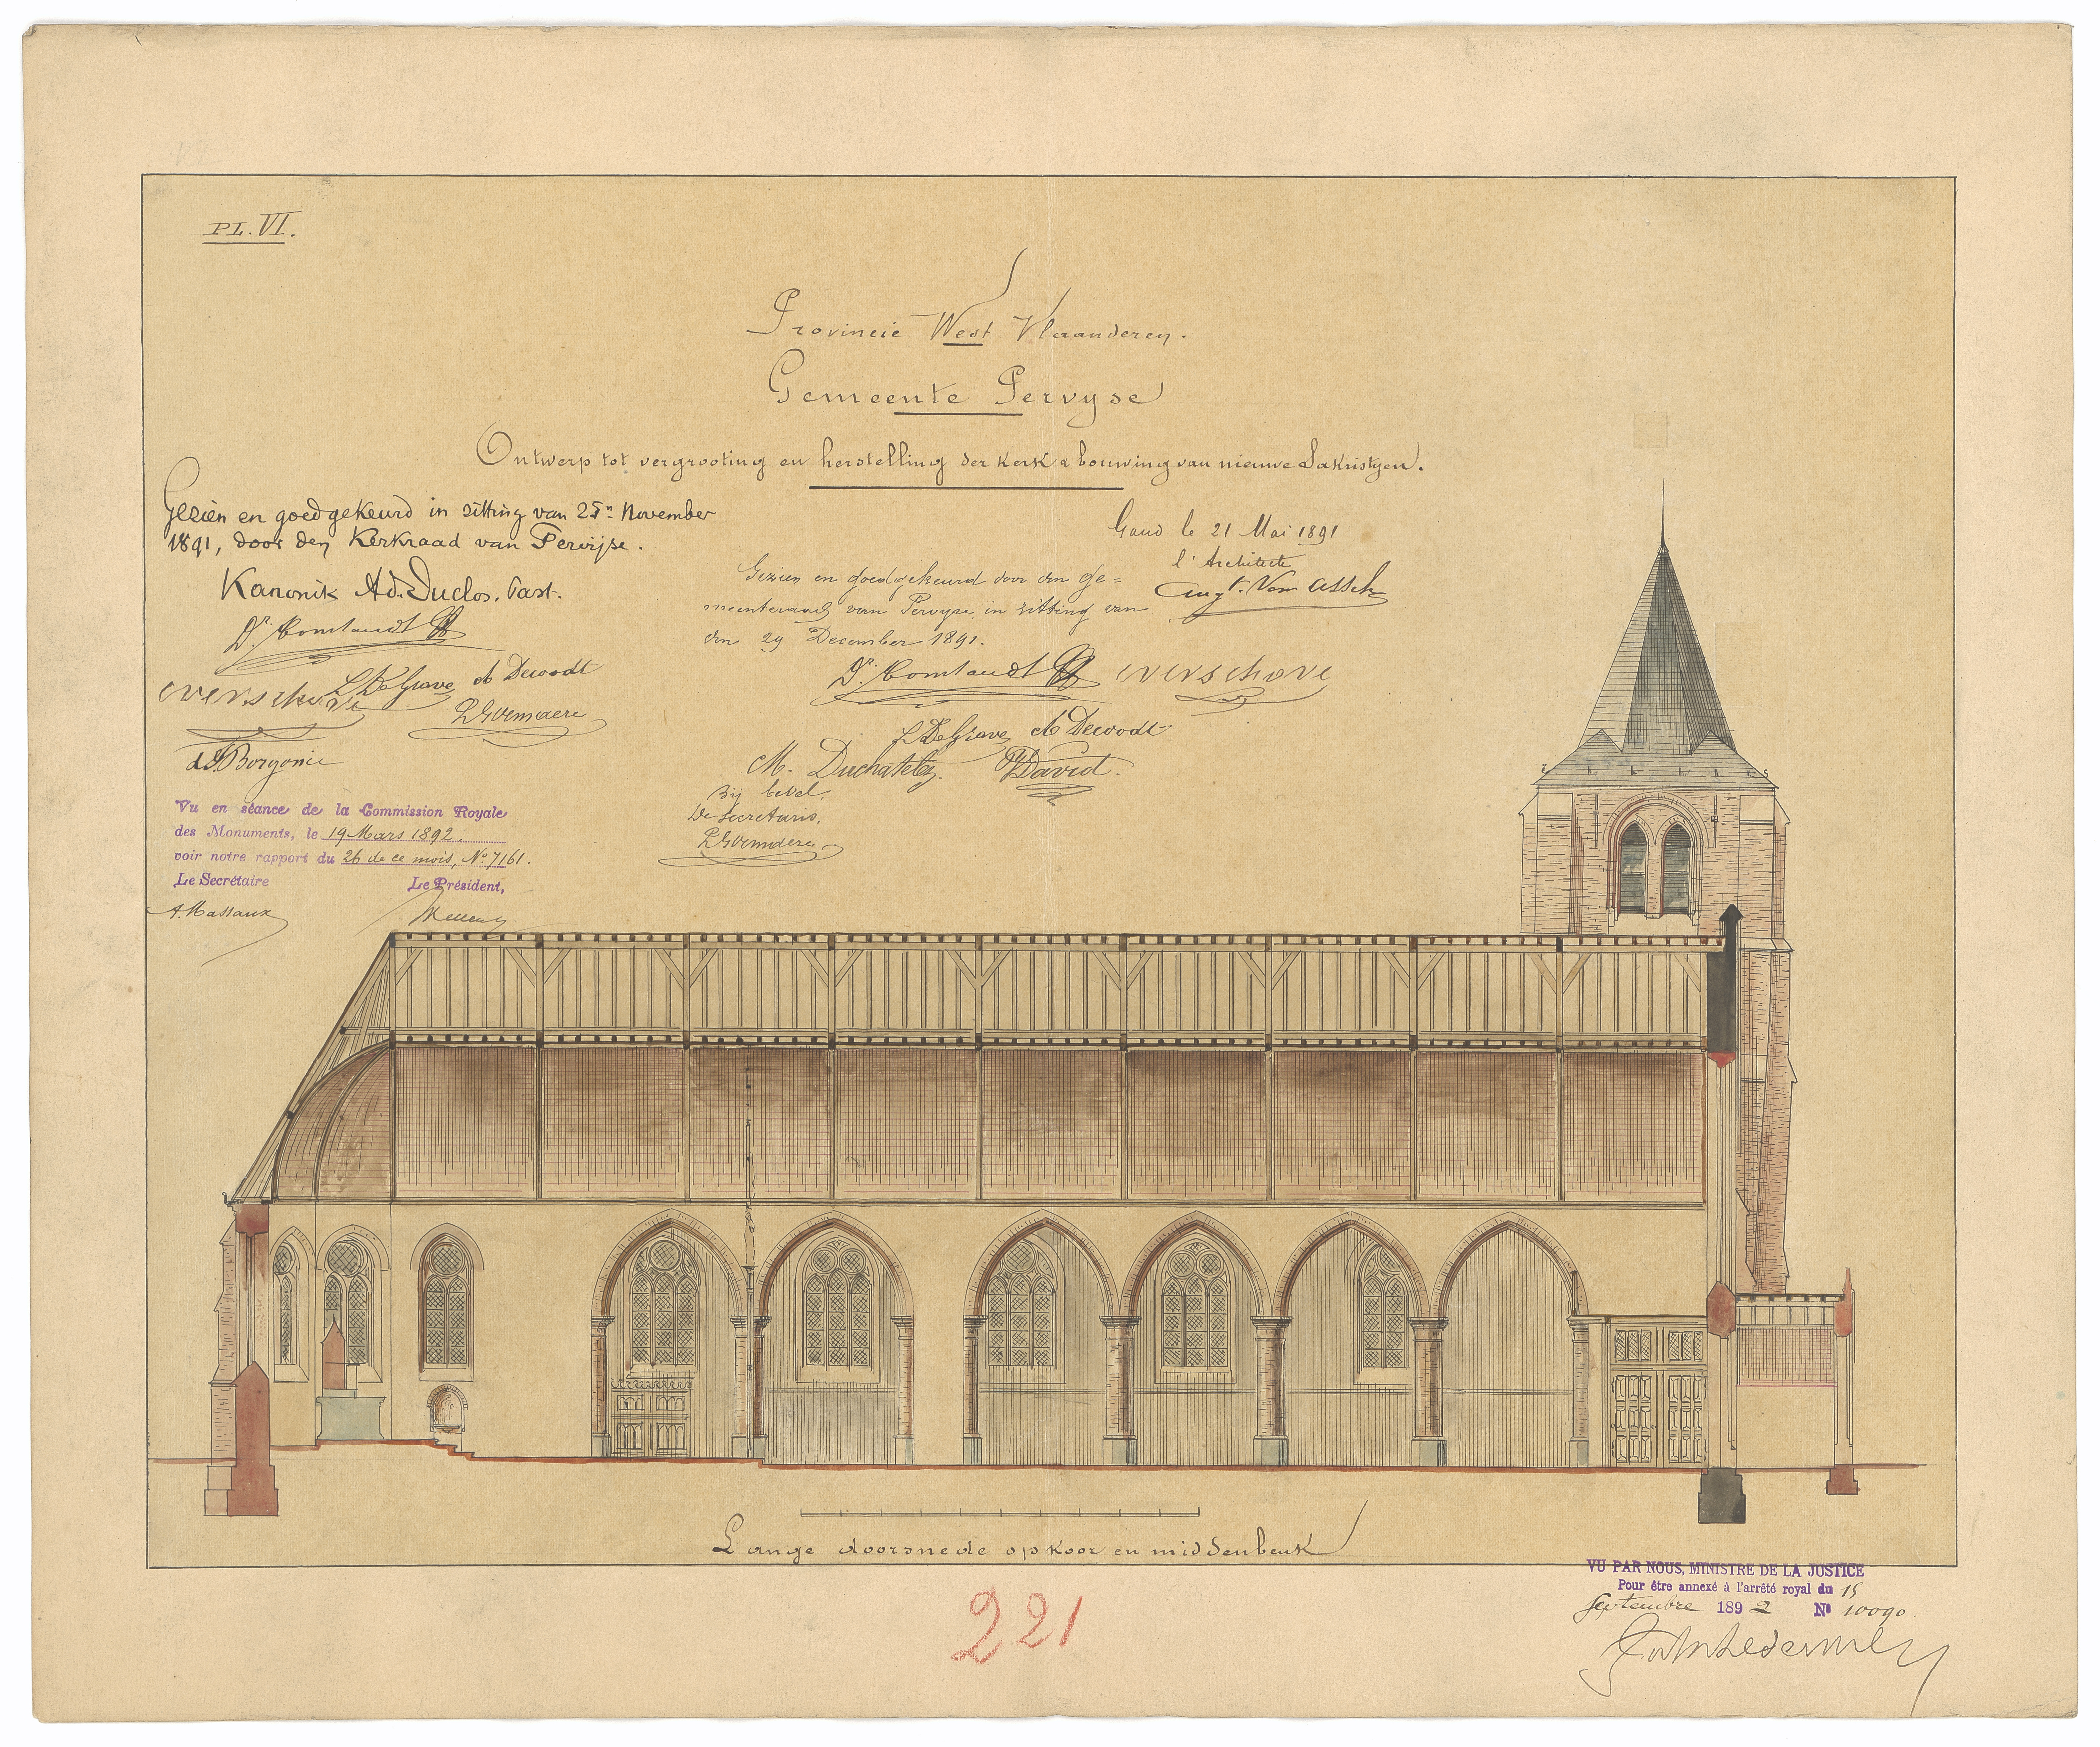 PL. VI.
Provincie West Vlaanderen.
Gemeente Pervyse
Ontwerp tot vergrooting en herstelling der kerk & bouwing van nieuwe Sakristyen.
Gezien en goedgekeurd in zitting van 25n November
1891, door den Kerkraad van Pervijse.
Kanonik Ad. Duclos. Past.
Dr. Comtaudt
L DeGrave A Dewodt
Verschave
d'J Borgonie
Gand le 21 Mai 1891
l'Architecte
Augt. Van Assche
Gezien en goedgekeurd door den Ge=
meenteraad van Pervyse in zitting van
den 29 December 1891.
Dr. Comtaudt Verschave
L DeGrave A Dewodt
M. Duchatelez. David.
Bij bevel,
De Secretaris,
Vu en séance de la Commission Royale
des Monuments, le 19 Mars 1892.
voir notre rapport du 26 de ce mois, No 7161.
Le Secrétaire Le Président,
A. Massaux
Lange doorsnede op koor en middenbeuk
221
VU PAR NOUS, MINISTRE DE LA JUSTICE
Pour être annexé à l'arrêté royal du 15
Septembre 1892 No 10090.